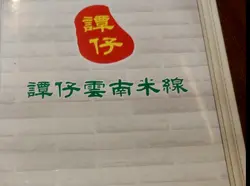 譚仔
譚仔雲南米線